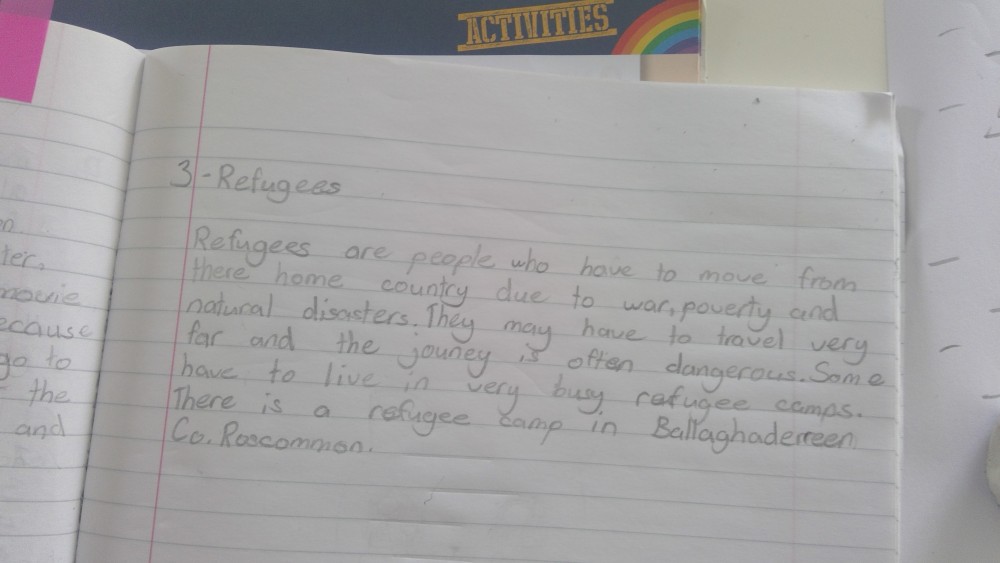 ACTIVITIES
ter,
movie
ecause
go to
the
and
3-Refugees
Refugees are people who have to move from
there home country due to war, poverty and
natural disasters. They may have to travel very
far and the jouney is often dangerous. Some
have to live in very busy refugee camps.
There is a refugee camp in Ballaghaderreen
Co. Roscommon.